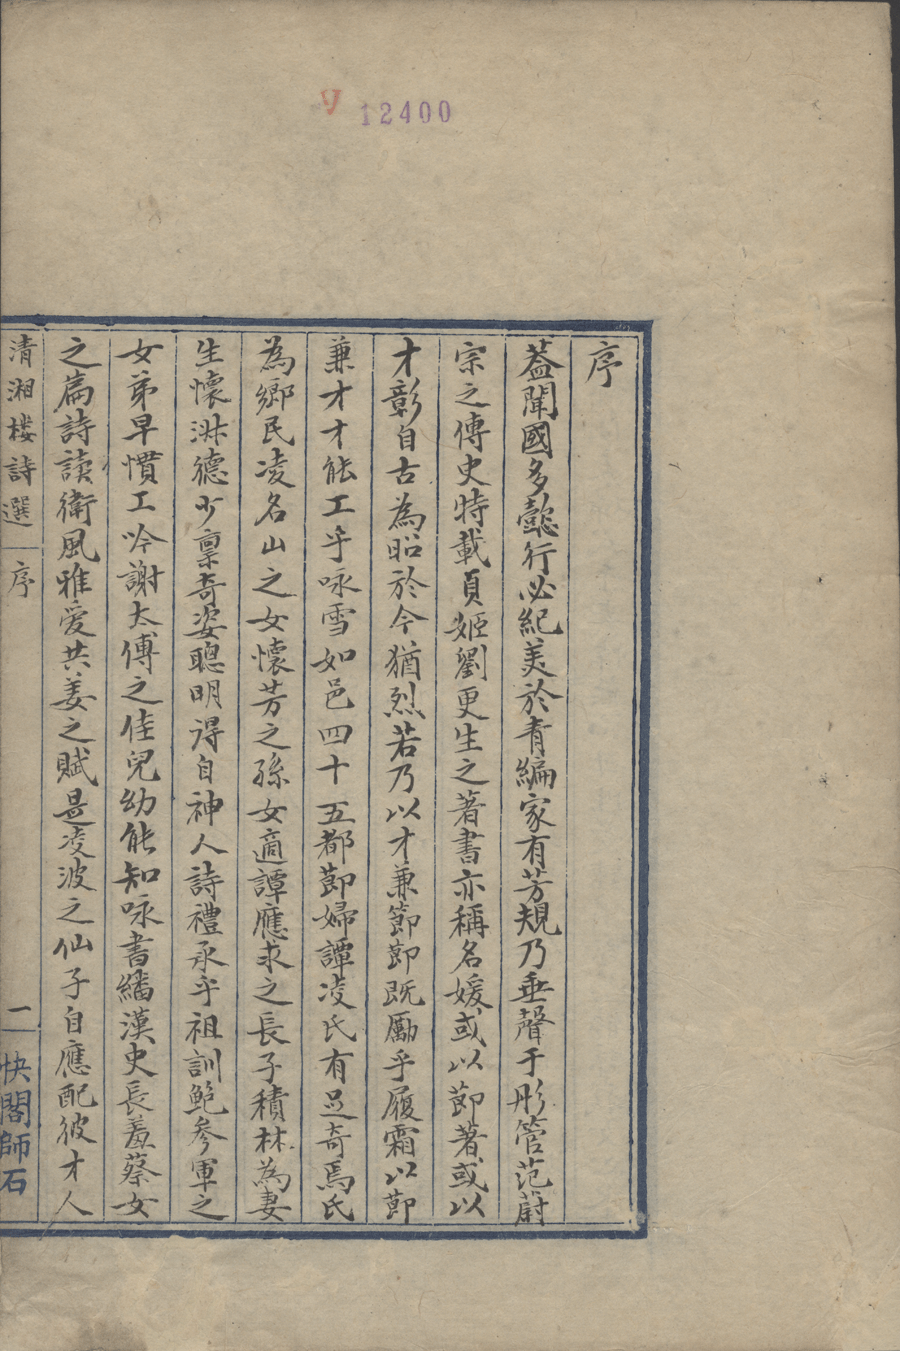 12400
序
蓋聞國多懿行必紀美於青編家有芳規乃垂聲于彤管范蔚
宗之傳史特載貞姬劉更生之著書亦稱名媛或以節著或以
才彰自古為昭於今猶烈若乃以才兼節節既勵乎履霜以節
兼才才能工乎咏雪如邑四十五都節婦譚凌氏有足奇焉氏
為鄉民凌名山之女懷芳之孫女適譚應求之長子積林為妻
生懷淋德少稟奇姿聰明得自神人詩禮承乎祖訓鮑參軍之
女弟早慣工吟謝太傅之佳兒幼能知咏書繙漢史長羞蔡女
之篇詩讀衛風雅愛共姜之賦是凌波之仙子自應配彼才人
清湘楼詩選 序 一 快閣師石